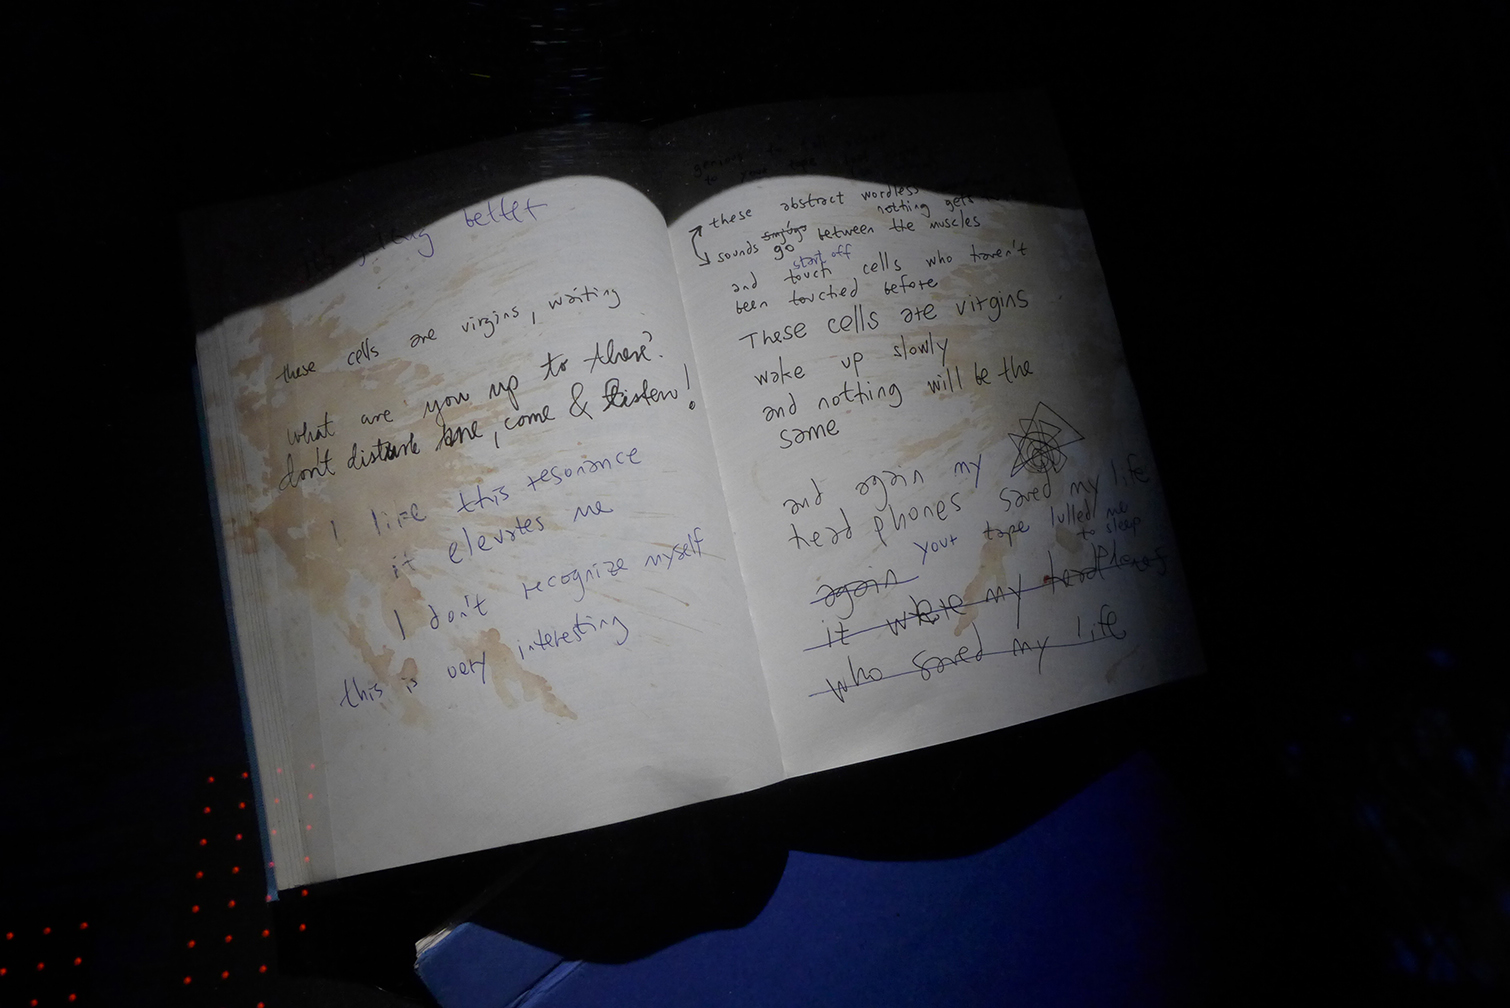 better
these cells are virgins, waiting
what are you up to there?
don't disturb me, come & listen!
I like this resonance
it elevates me
I don't recognize myself
this is very interesting
to your tape
these abstract wordless
nothing gets
sounds go between the muscles
start off
and touch cells who haven't
been touched before
These cells are virgins
wake up slowly
and nothing will be the
same
and again my
head phones saved my life
your tape lulled me
to sleep
again
it where my headphones
who saved my life